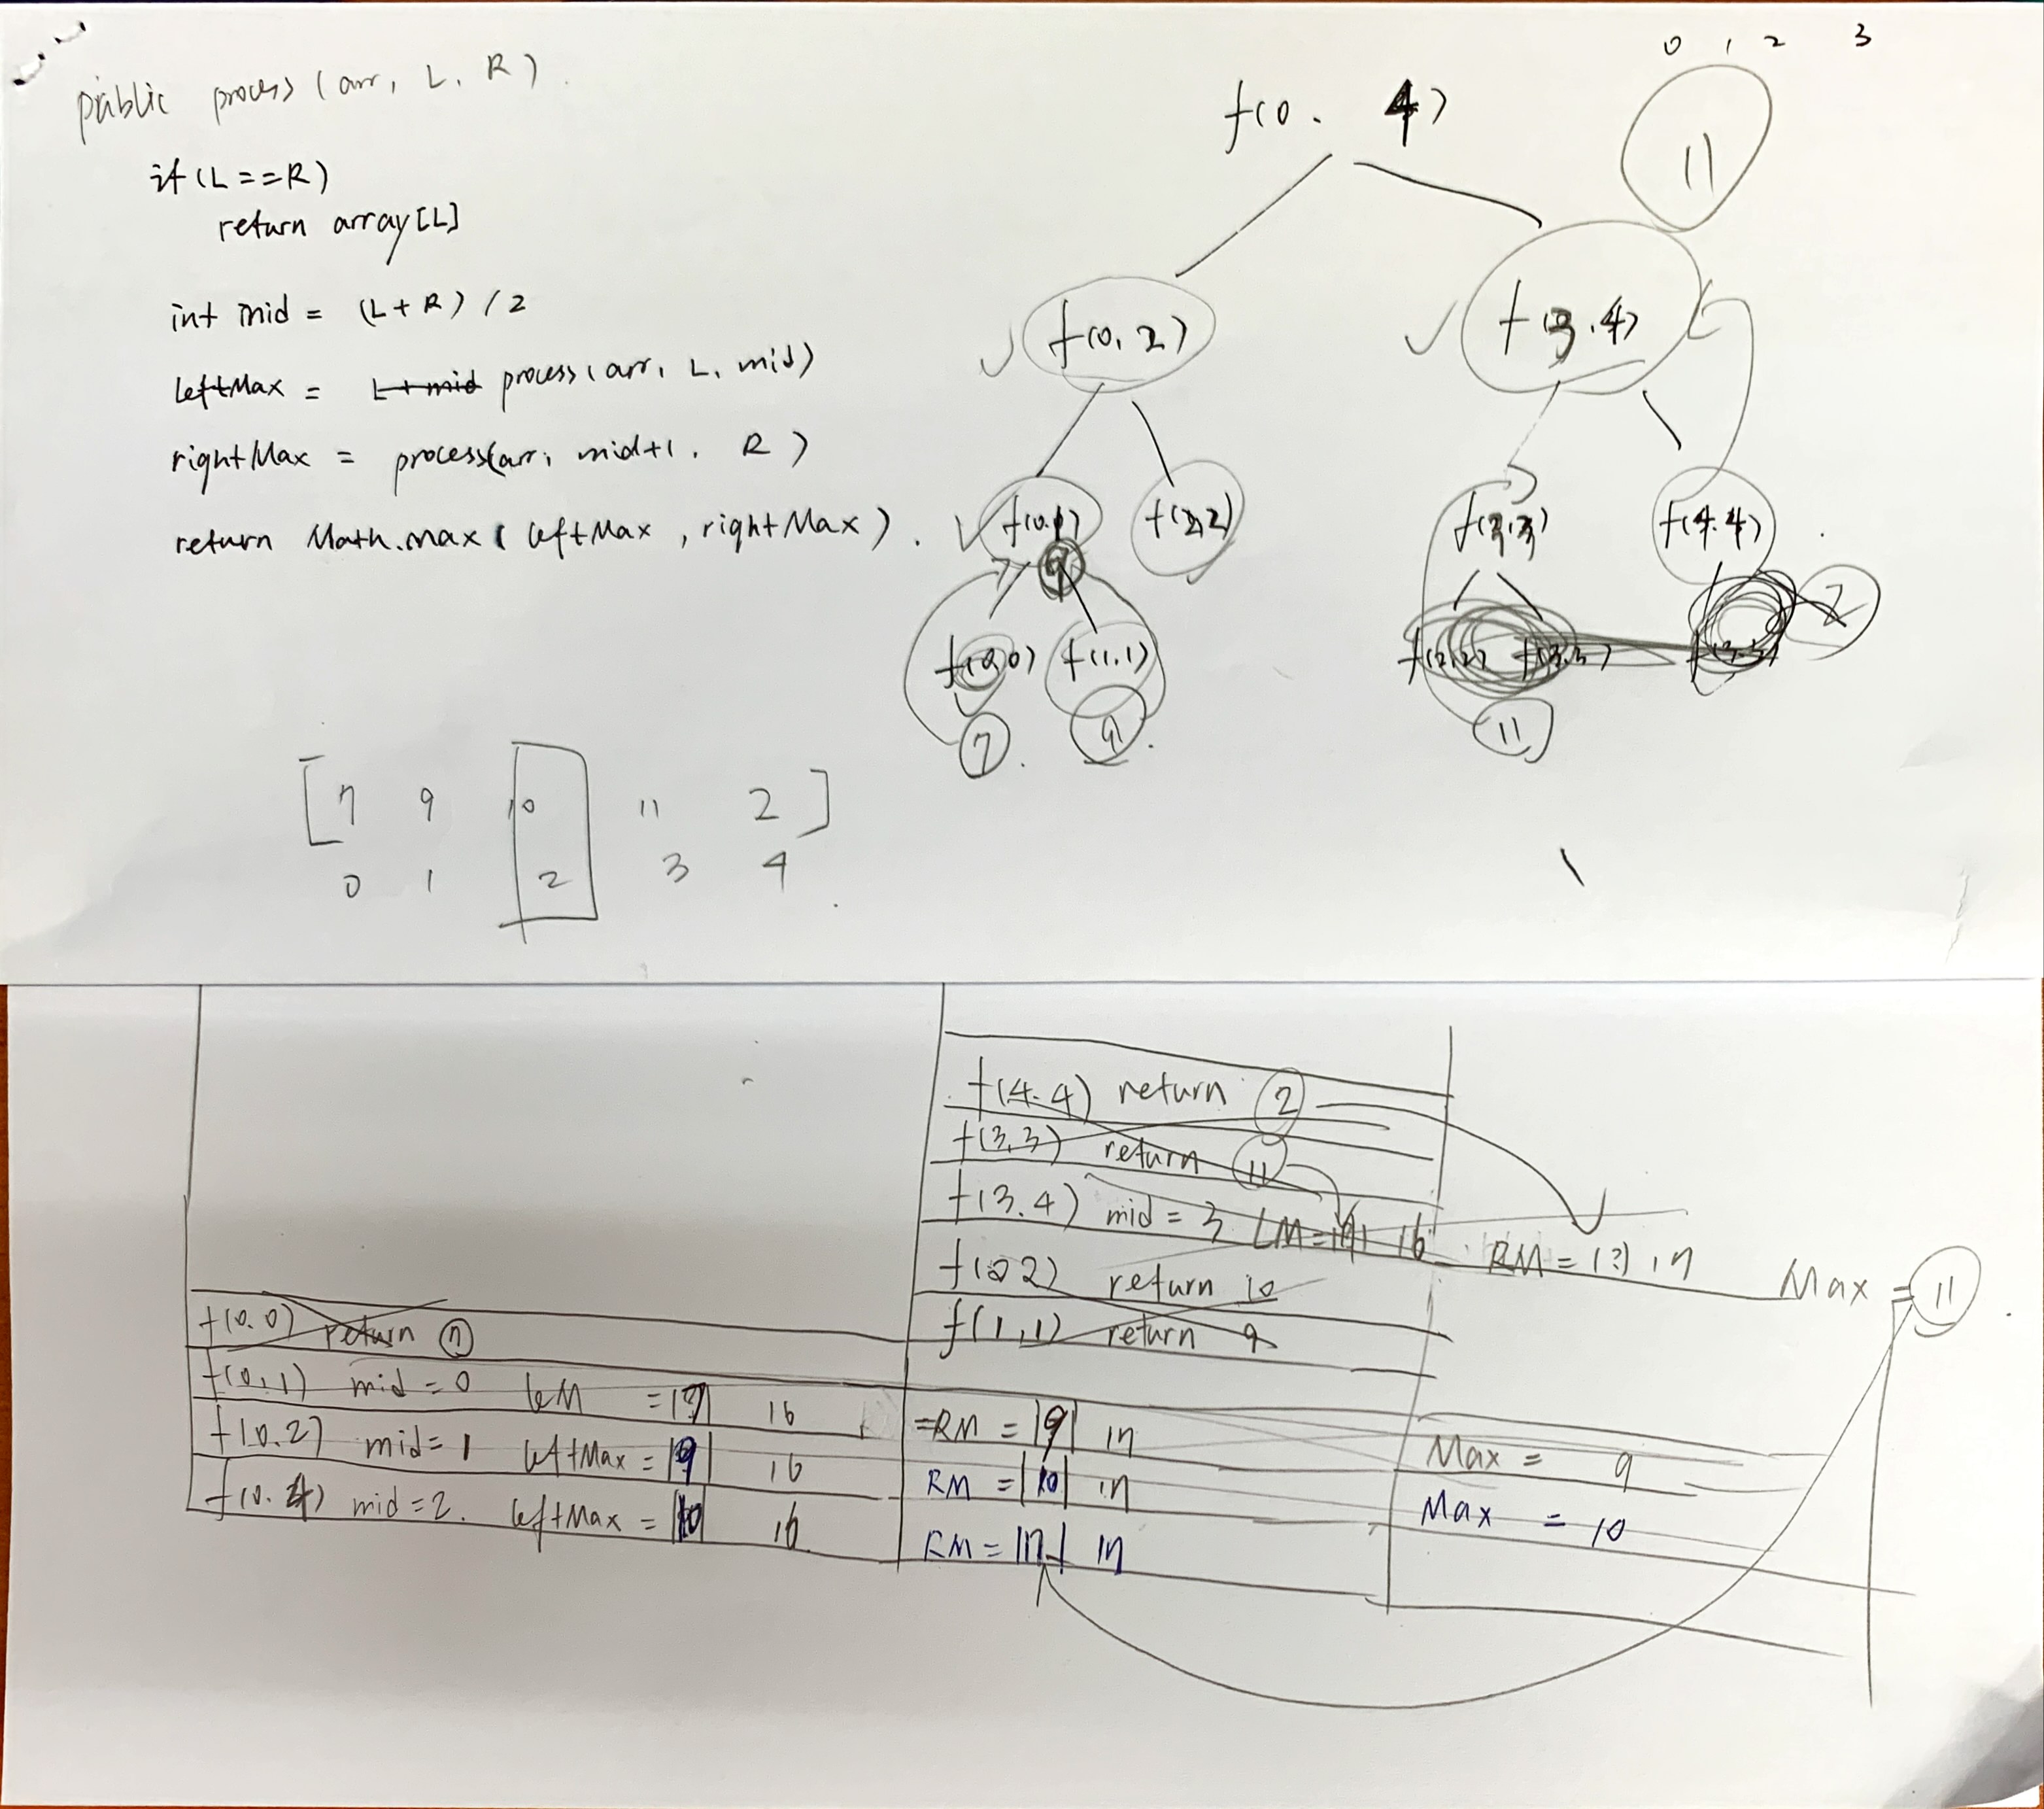 public process (arr, L, R)
if (L == R)
return array[L]
int mid = (L + R) / 2
leftMax = L + mid process (arr, L, mid)
rightMax = process(arr, mid+1, R)
return Math.max ( leftMax , rightMax ) .
[ 7 9 10 11 2 ]
0 1 2 3 4
0 1 2 3
f(0. 4)
11
f(0, 2) f(3.4)
f(0.1) f(2,2) f(3,3) f(4.4)
9
f(0,0) f(1,1) f(2,2) f(3,3) f(3.3) 2
7 9 11
f(4.4) return 2
f(3,3) return 11
f(3.4) mid = 3 LM = 16 RM = 17 Max = 11
f(2 2) return 10
f(1,1) return 9
f(0.0) return 7
f(0,1) mid = 0 leM = 16 =RM = 9 17 Max = 9
f(0.2) mid = 1 leftMax = 9 16 RM = 10 17 Max = 10
f(0.4) mid = 2. leftMax = 10 16 RM = 17